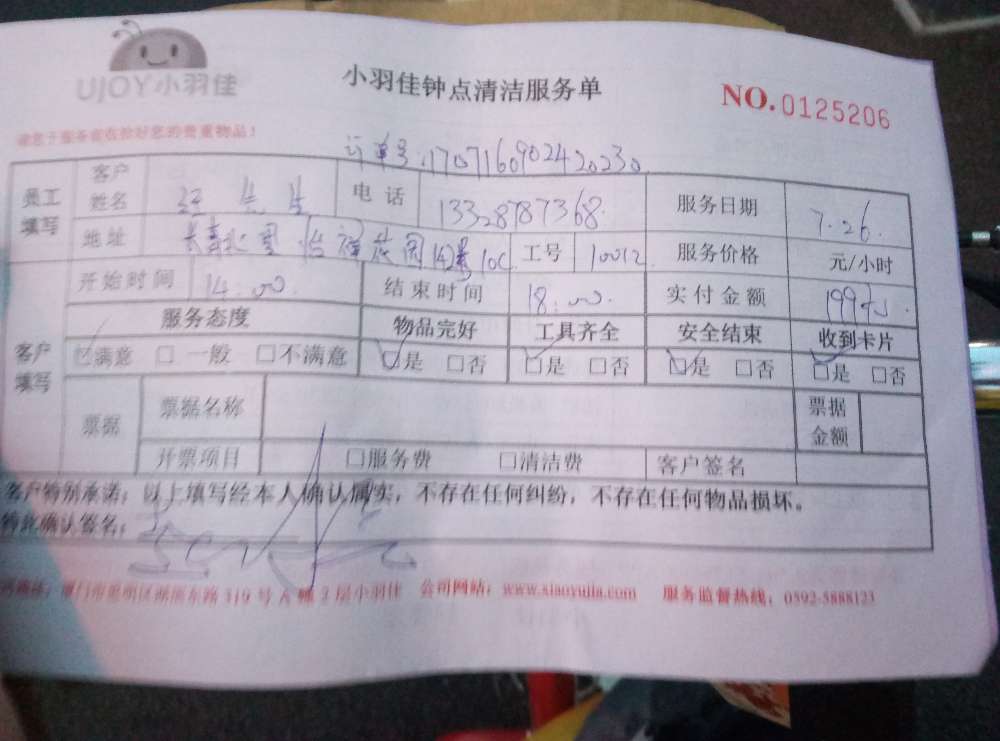 UJOY小羽佳
小羽佳钟点清洁服务单
NO.0125206
请您于服务前收拾好您的贵重物品!
订单号:17071609024420230
员工填写 客户姓名 江先生 电话 13328787368 服务日期 7.26
地址 长青北里怡祥花园142号10C 工号 10012 服务价格 元/小时
开始时间 14:00 结束时间 18:00 实付金额 199元
客户填写 服务态度 物品完好 工具齐全 安全结束 收到卡片
☑满意 □一般 □不满意 ☑是 □否 ☑是 □否 ☑是 □否 ☑是 □否
票据 票据名称 票据金额
开票项目 □服务费 □清洁费 客户签名
客户特别承诺:以上填写经本人确认属实,不存在任何纠纷,不存在任何物品损坏。
特此确认签名:
厦门市思明区湖滨东路319号A幢2层小羽佳 公司网站:www.xiaoyujia.com 服务监督热线:0592-5888123